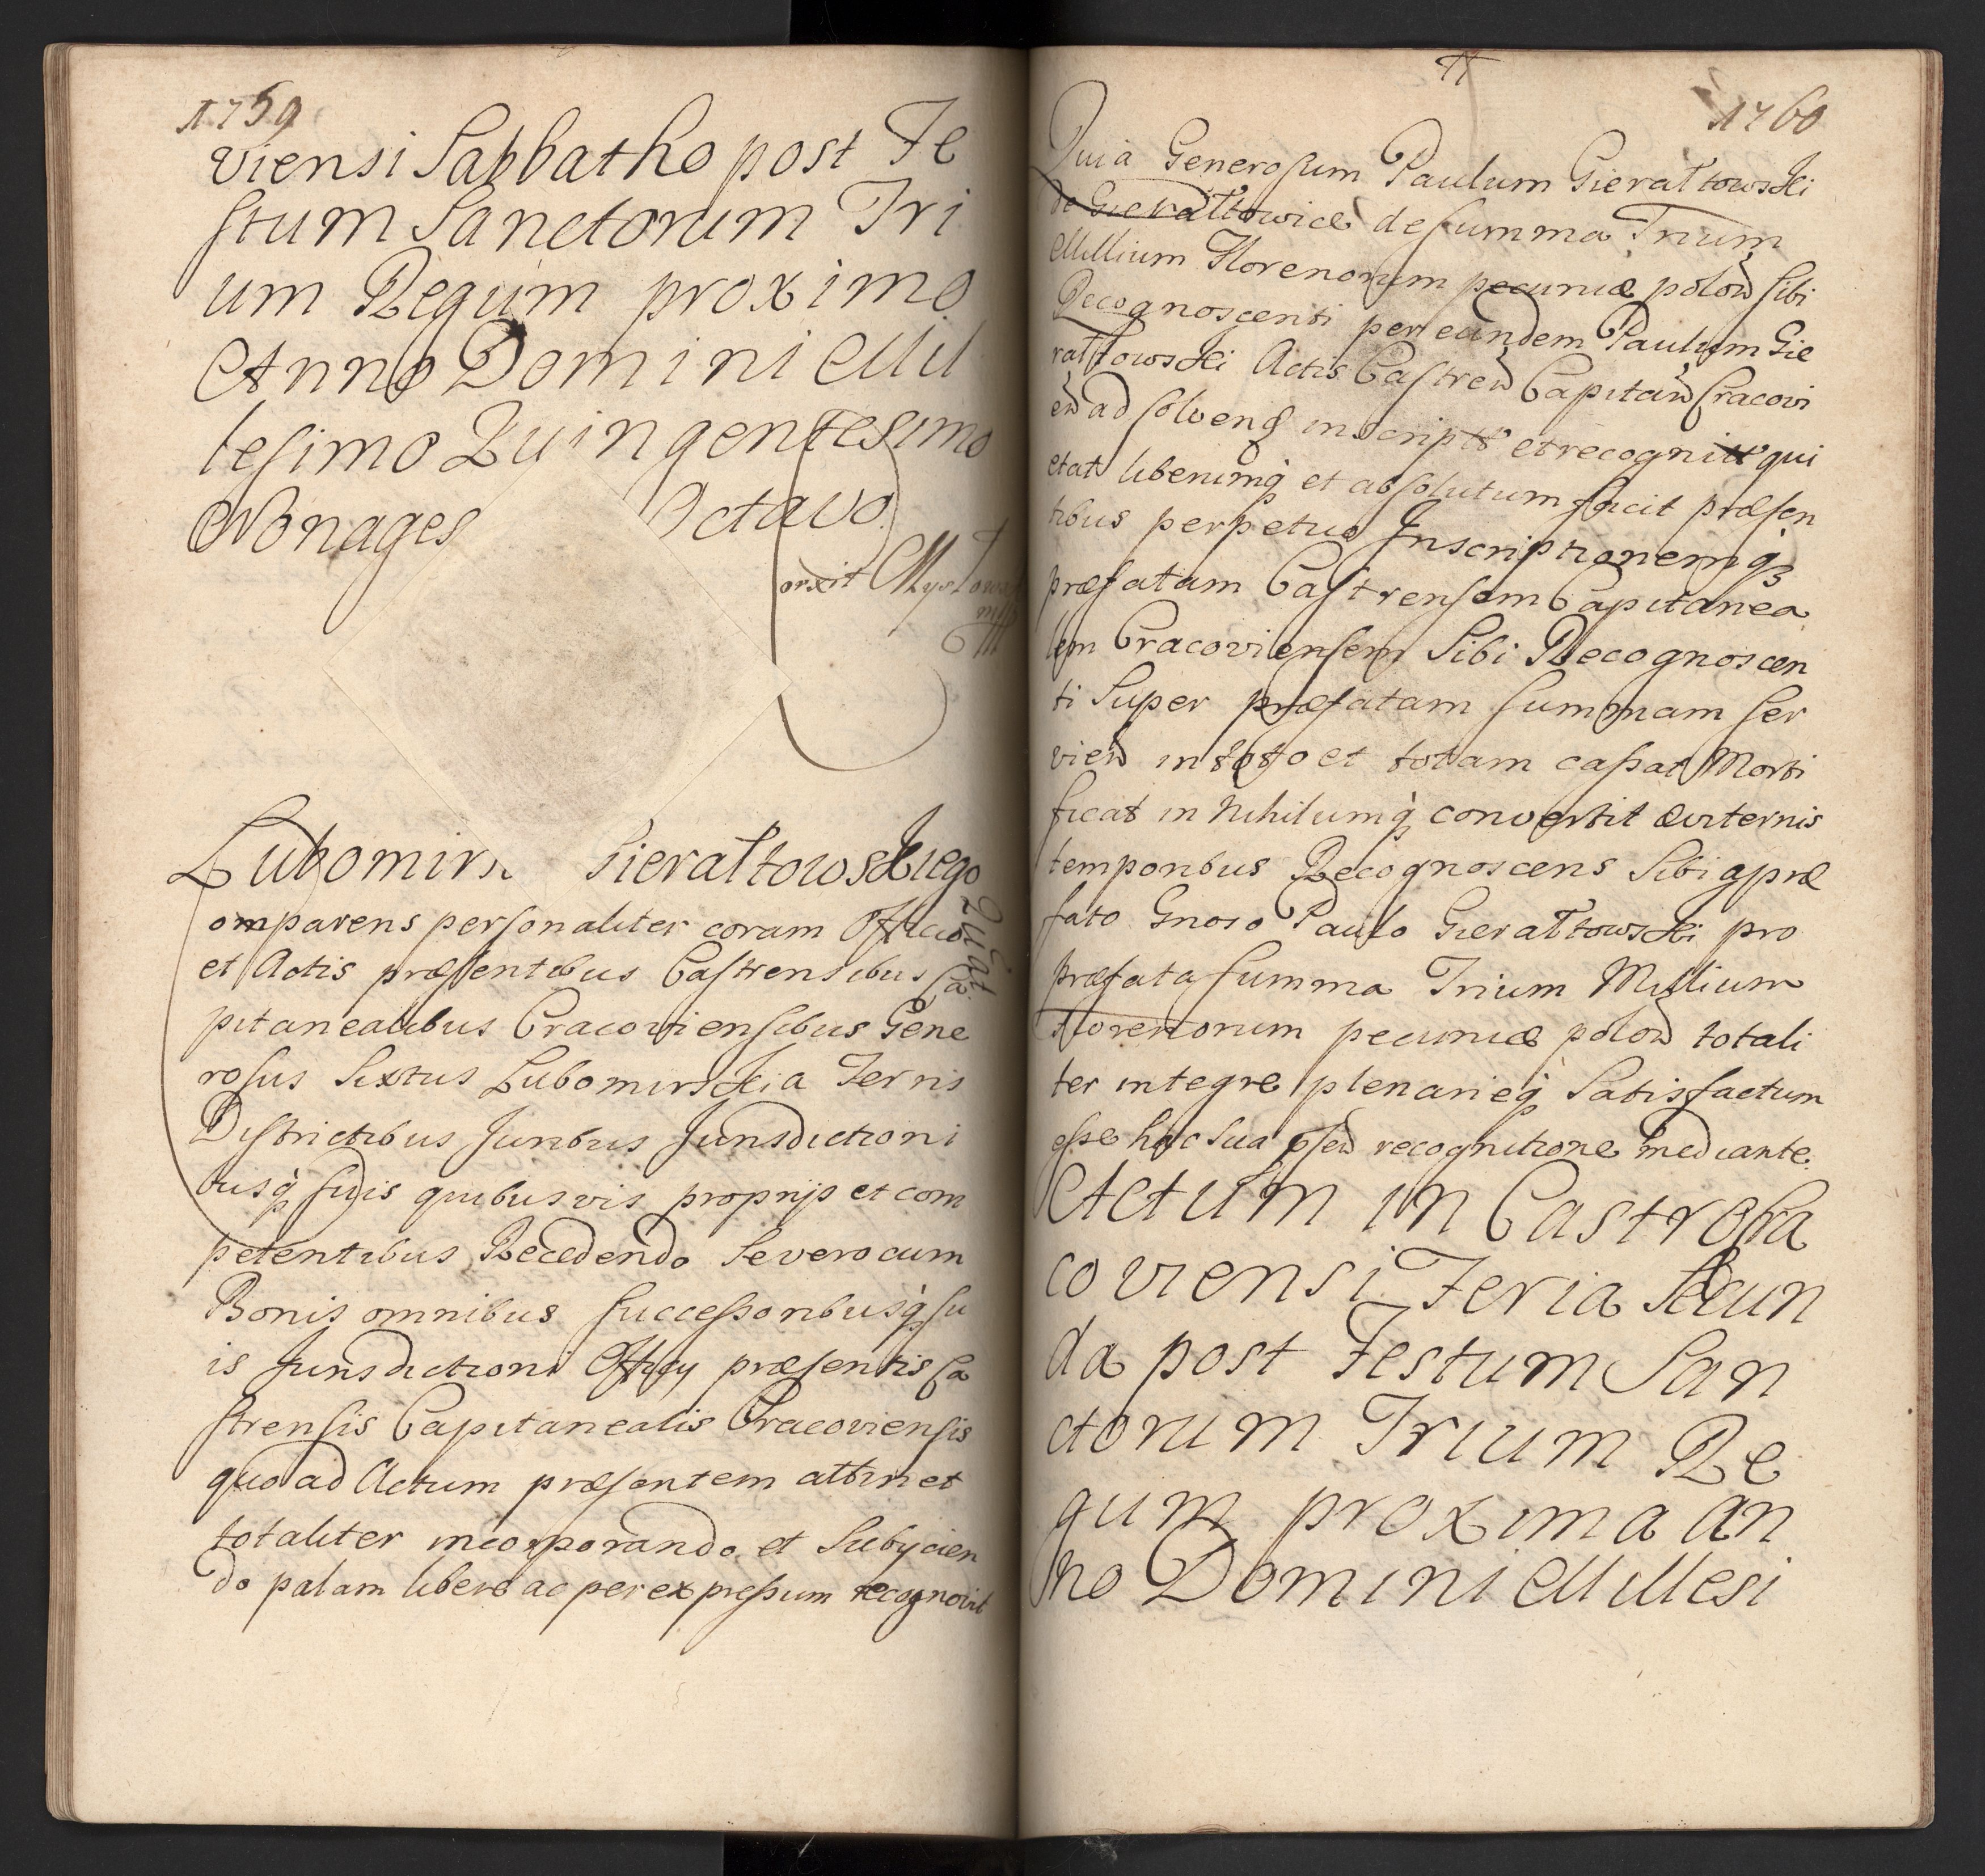 1759
viensi Sabbatho post Fe
stum Sanctorum Tri
um Regum proximo
Anno Domini Mil
lesimo Quingentesimo
Nonages Octavo
Lubomirs Gierałtowskiego
Quietat
omparens personaliter coram Officio
et Actis præsentibus Castrensibus Ca
pitanealibus Cracoviensibus Gene
rosus Sixtus Lubomirskia Terris
Districtibus Juribus Jurisdictioni
busq; suis quibusvis proprijs et com
petentibus Recedendo Severocum
Bonis omnibus successoribusq; su
is Jurisdictioni Officij præsentis Ca
strensis Capitanealis Cracoviensis
quo ad Actum præsentem attinet
totaliter incorporando et Subijcien
do palam libere ac per expressum recognovit
1760
Quia Generosum Paulum Gierałtowski
de Gierałtowice de summa Trium
Millium Florenorum pecuniæ polon Sibi
Recognoscenti per eundem Paulum Gie
rałtowski Actis Castren Capitan Cracovi
en ad solvend inscript et recognit qui
etat liberumq; et absolutum facit præsen
tibus perpetuo Inscriptionemq;
præfatam Castrensem Capitanea
lem Cracoviensem Sibi Recognoscen
ti Super præfatam summam ser
vien in toto et totam cassat Morti
ficat in Nihilumq; convertit æviternis
temporibus Recognoscens Sibi a præ
fato Gnoso Paulo Gierałtowski pro
præfata summa Trium Millium
Florenorum pecuniæ polon totali
ter integre plenarieq; Satisfactum
esse hac sua psen recognitione mediante
Actum in Castro Cra
coviensi Feria Secun
da post Festum San
ctorum Trium Re
gum proxima An
no Domini Millesi